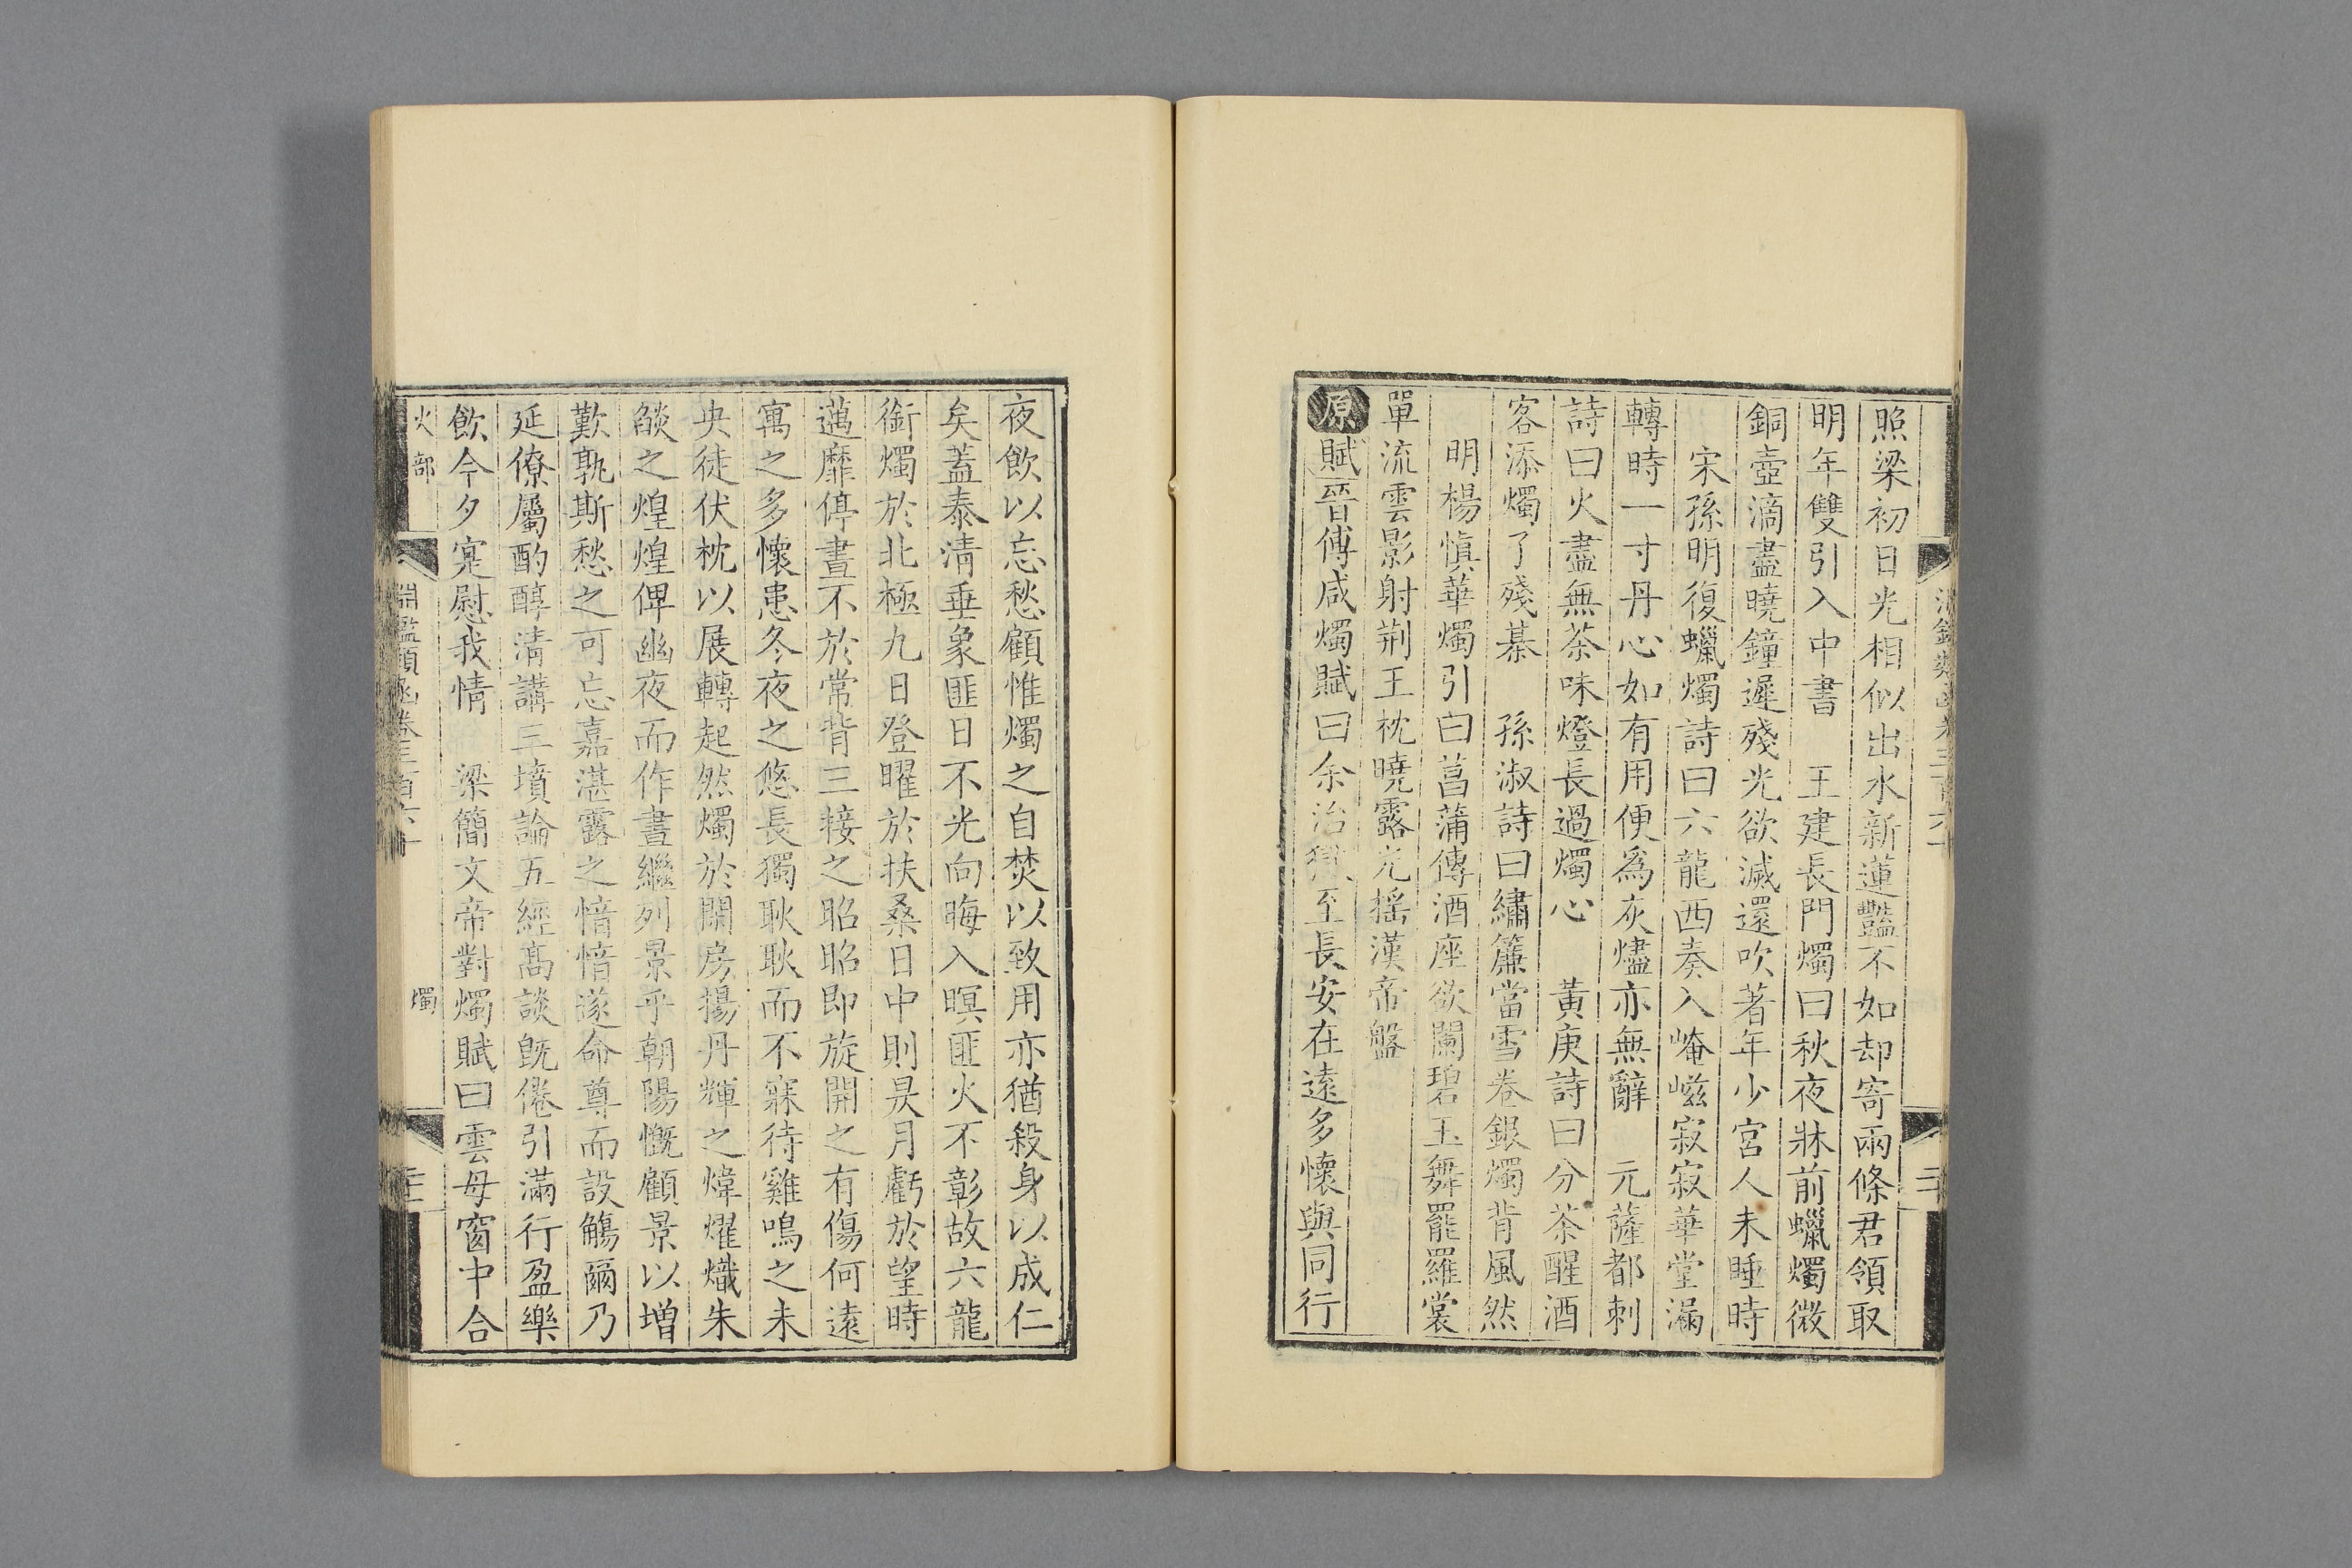 照梁初日光相似出水新蓮豔不如却寄兩條君領取
明年雙引入中書　王建長門燭曰秋夜牀前蠟燭微
銅壺滴盡曉鐘遲殘光欲滅還吹著年少宮人未睡時
宋孫明復蠟燭詩曰六龍西奏入崦嵫寂寂華堂漏
轉時一寸丹心如有用便爲灰燼亦無辭　元薩都剌
詩曰火盡無茶味燈長過燭心　黃庚詩曰分茶醒酒
客添燭了殘棊　孫淑詩曰繡簾當雪卷銀燭背風然
明楊慎華燭引曰菖蒲傳酒座欲闌碧玉舞罷羅裳
單流雲影射荆王枕曉露光搖漢帝盤
原賦晉傅咸燭賦曰余治獄至長安在遠多懷與同行
夜飲以忘愁顧惟燭之自焚以致用亦猶殺身以成仁
矣蓋泰清垂象匪日不光向晦入暝匪火不彰故六龍
銜燭於北極九日登曜於扶桑日中則昃月虧於望時
邁靡停晝不於常背三接之昭昭即旋開之有傷何遠
寓之多懷患冬夜之悠長獨耿耿而不寐待雞鳴之未
央徒伏枕以展轉起然燭於閒房揚丹輝之煒燿熾朱
燄之煌煌俾幽夜而作晝繼列景乎朝陽慨顧景以增
歎孰斯愁之可忘嘉湛露之愔愔遂命尊而設觴爾乃
延僚屬酌醇清講三墳論五經高談旣倦引滿行盈樂
飲今夕寔慰我情　梁簡文帝對燭賦曰雲母窗中合
火部　淵鑑類函卷三百六十　燭